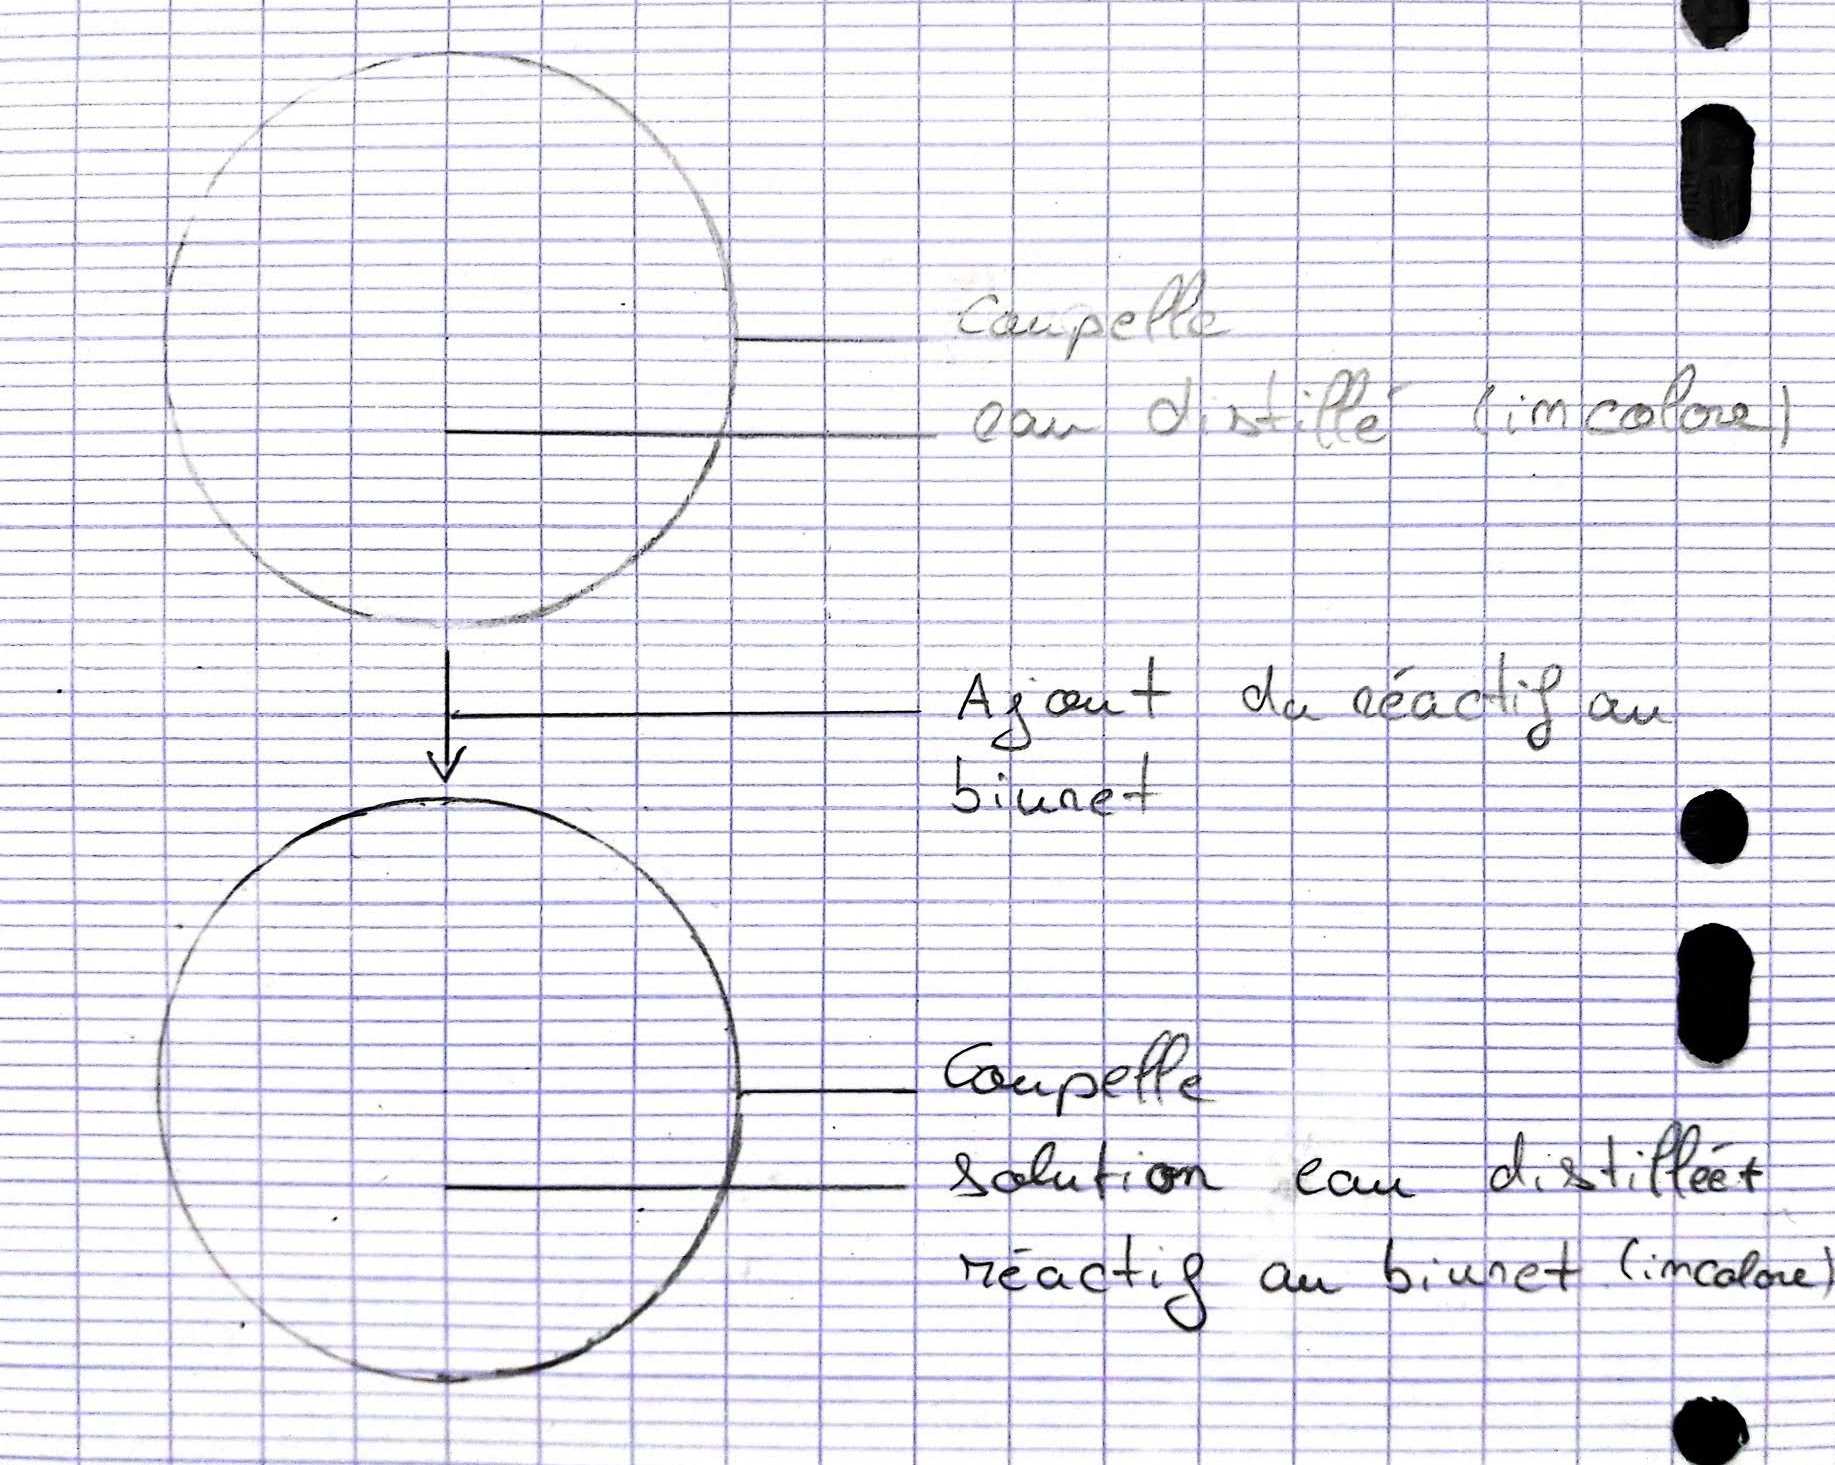 Coupelle
eau distillé (incolore)
Ajout du réactif au
biuret
Coupelle
solution eau distillée+
réactif au biuret (incolore)